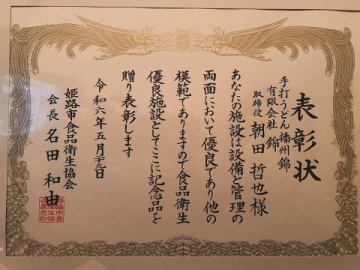 表彰状
手打うどん播州錦
有限会社 錦
取締役 朝田哲也様
あなたの施設は設備と管理の
両面において優良であり他の
模範でありますので食品衛生
優良施設としてここに記念品を
贈り表彰します
令和六年五月二十三日
姫路市食品衛生協会
会長 名田和由